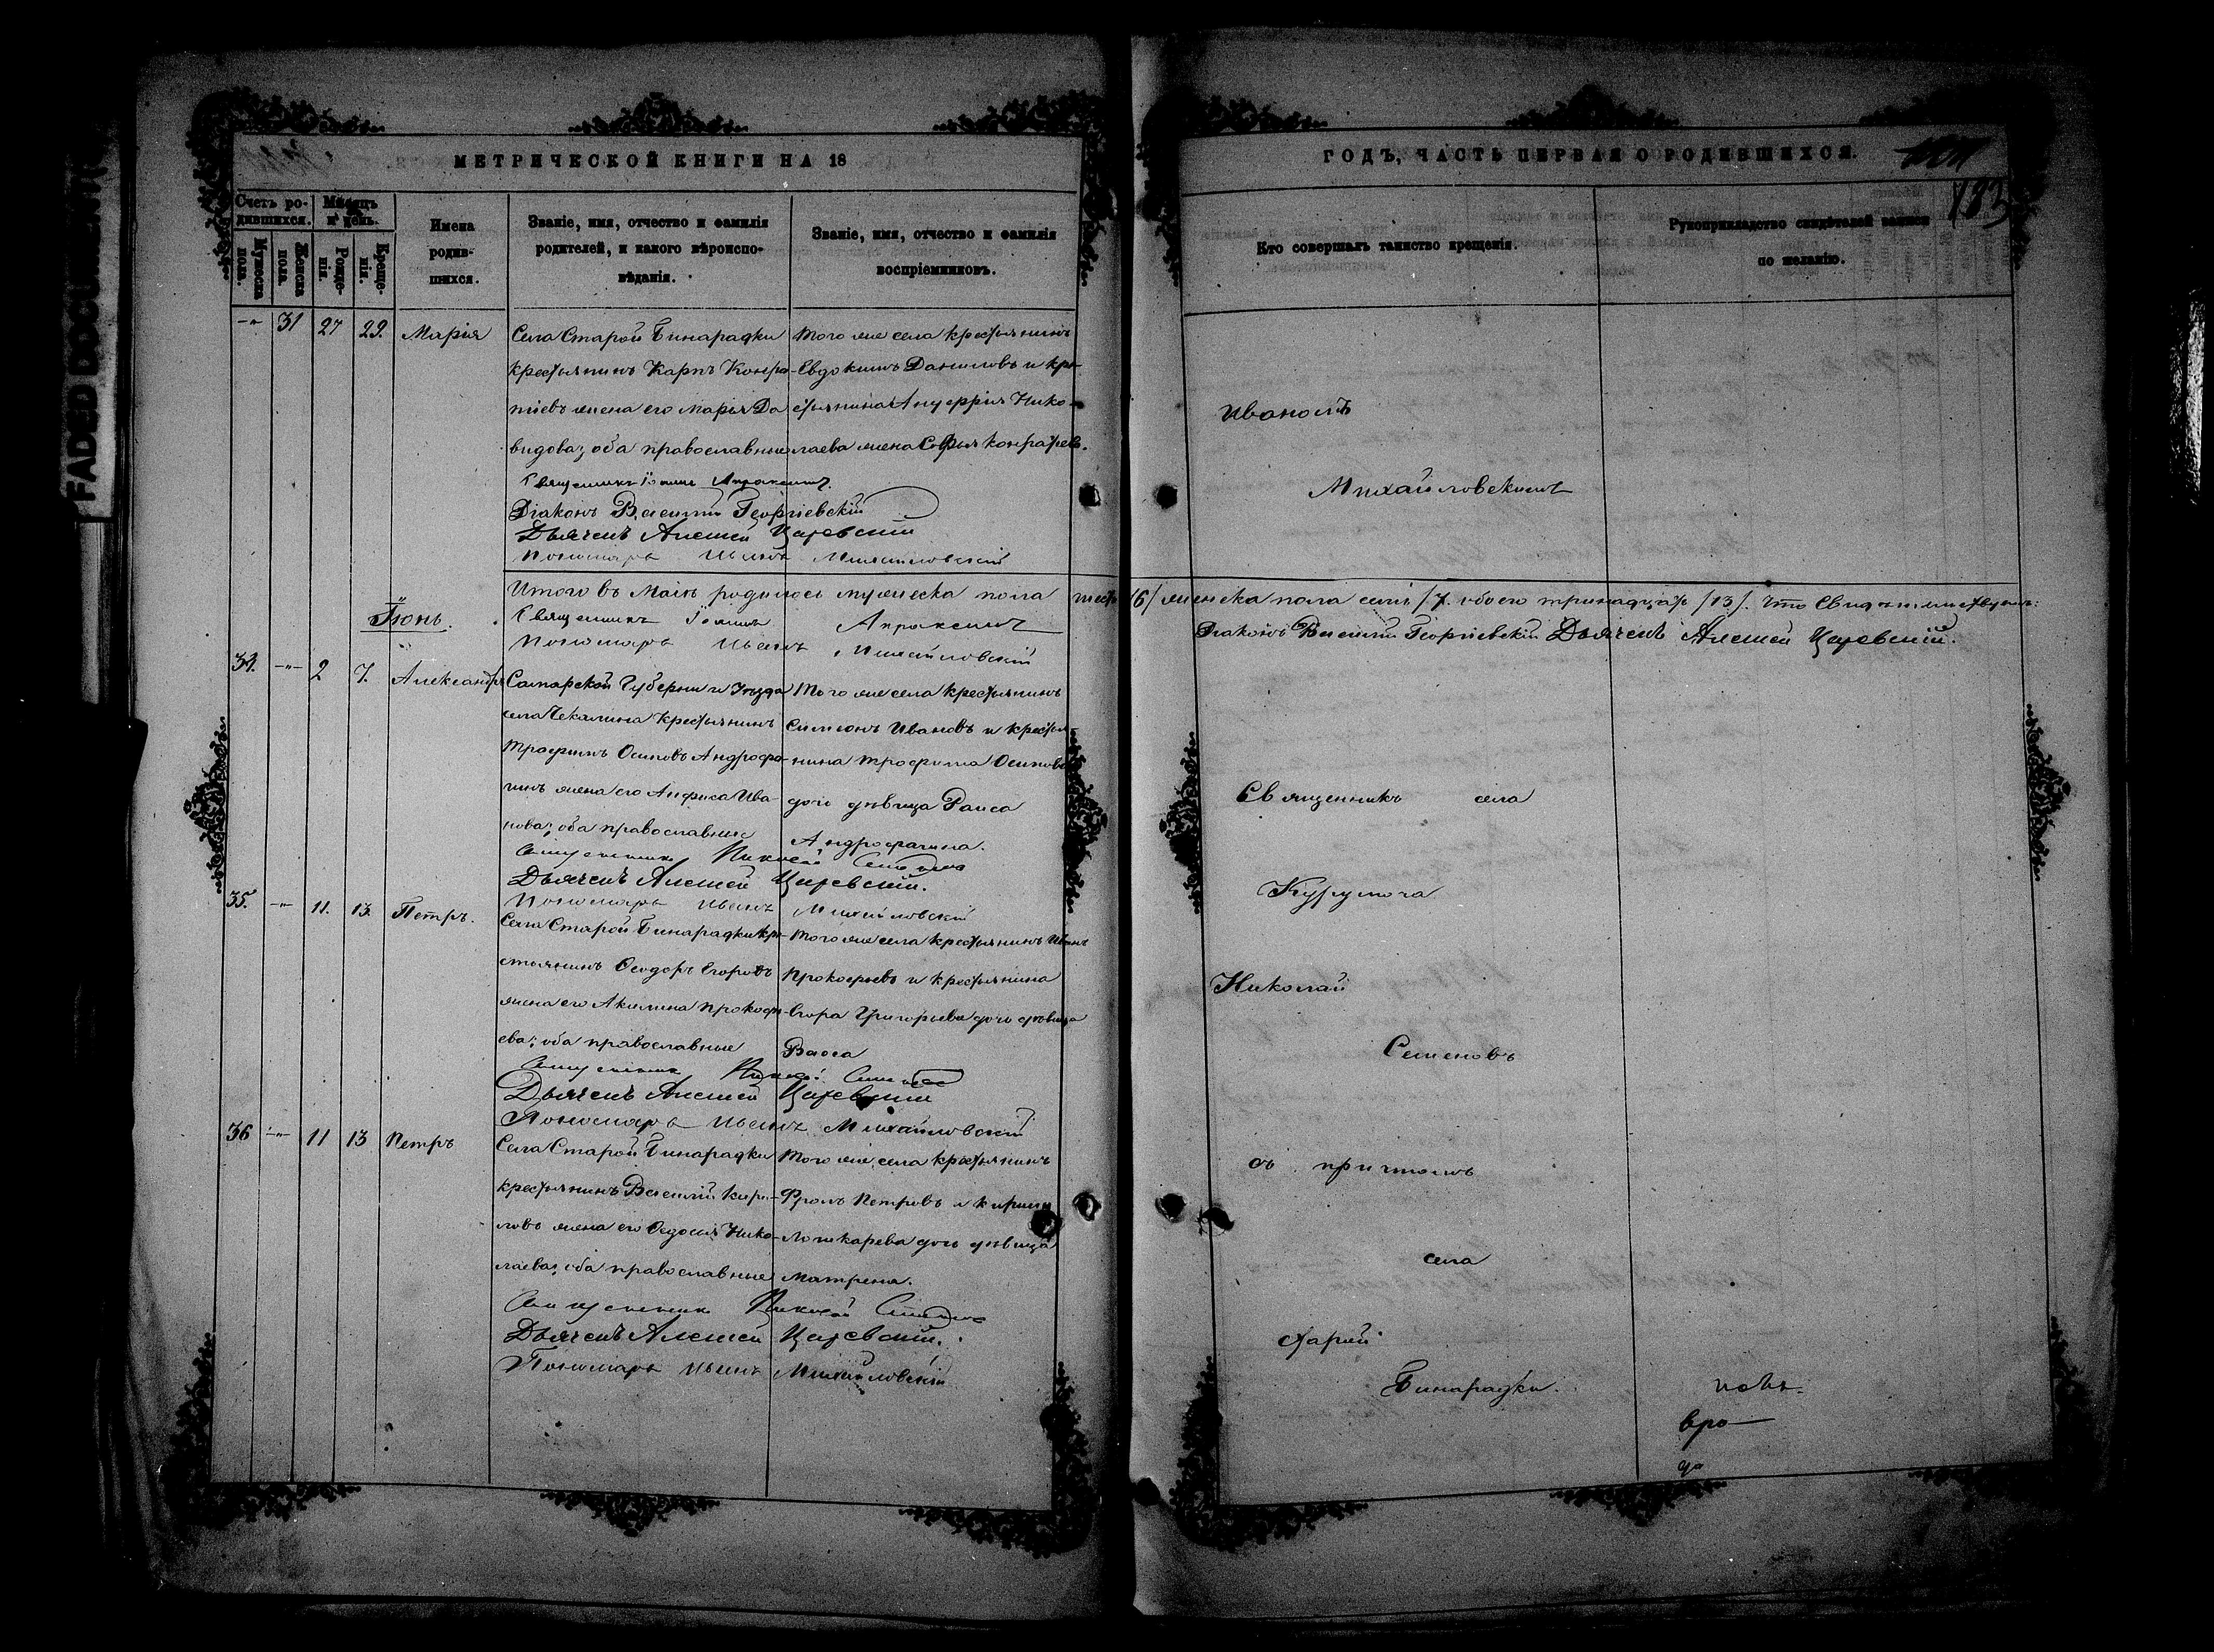 FADED DOCUMENT
МЕТРИЧЕСКОЙ КНИГИ НА 18
Счетъ ро-
дившихся.
Мѣсяцъ
и день.
Мужеска
пола.
Женска
пола.
Рожде-
нія.
Креще-
нія.
Имена
родив-
шихся.
Званіе, имя, отчество и фамилія
родителей, и какого вѣроиспо-
вѣданія.
Званіе, имя, отчество и фамилія
воспріемниковъ.
31 27 29. Марія
Села Старой Бинарадки
крестьянинъ Карпъ Кондра-
тіевъ жена его Марія Да
видова; оба православные
Того же села крестьянинъ
Евдокимъ Даниловъ и кре-
стьянина Ануфрія Нико-
лаева жена Софья Кондратьев.
Священникъ Іоаннъ Апраксинъ.
Діаконъ Василій Георгіевскій
Дьячекъ Алексей Царевскій
Пономарь Иванъ Михайловскій
Итого въ Маіѣ родилось мужеска пола шесть
Іюнь.
Священникъ Іоаннъ Апраксинъ
Пономарь Иванъ Михайловскій
34. 2 7. Александръ
Самарской Губерніи и Уѣзда
села Чекалина крестьянинъ
Трофимъ Осиповъ Андрофа-
гинъ жена его Анфиса Ива-
нова; оба православные
Того же села крестьянинъ
Симеонъ Ивановъ и крестья
нина Трофима Осипова
дочь дѣвица Раиса
Андрофагина.
Священникъ Николай Семеновъ
Дьячекъ Алексей Царевскій.
Пономарь Иванъ Михайловскій
35. 11. 13. Петръ.
Села Старой Бинарадки кре-
стьянинъ Ѳеодоръ Егоровъ
жена его Акилина Прокофи-
ева; оба православные
Того же села крестьянинъ Иванъ
Прокофьевъ и крестьянина
Егора Григорьева дочь дѣвица
Васса
Священникъ Николай Семеновъ
Дьячекъ Алексей Царевскій
Пономарь Иванъ Михайловскій
36 11 13 Петръ
Села Старой Бинарадки
крестьянинъ Василій Кири-
ловъ жена его Ѳедосья Нико-
лаева; оба православные
Того же села крестьянинъ
Фролъ Петровъ и
дочь дѣвица
Матрена.
Священникъ Николай Семеновъ
Дьячекъ Алексей Царевскій.
Пономарь Иванъ Михайловскій
ГОДЪ, ЧАСТЬ ПЕРВАЯ О РОДИВШИХСЯ.
183
Кто совершалъ таинство крещенія.
Рукоприкладство свидѣтелей записи
по желанію.
Иваномъ
Михайловскимъ
/6/ женска пола семь /7. обоего тринадцать /13/. Что свидѣтельствуемъ:
Діаконъ Василій Георгіевскій Дьячекъ Алексей Царевскій.
Священникъ села
Курумоча
Николай
Семеновъ
съ причтомъ
села
Старой
Бинарадки.